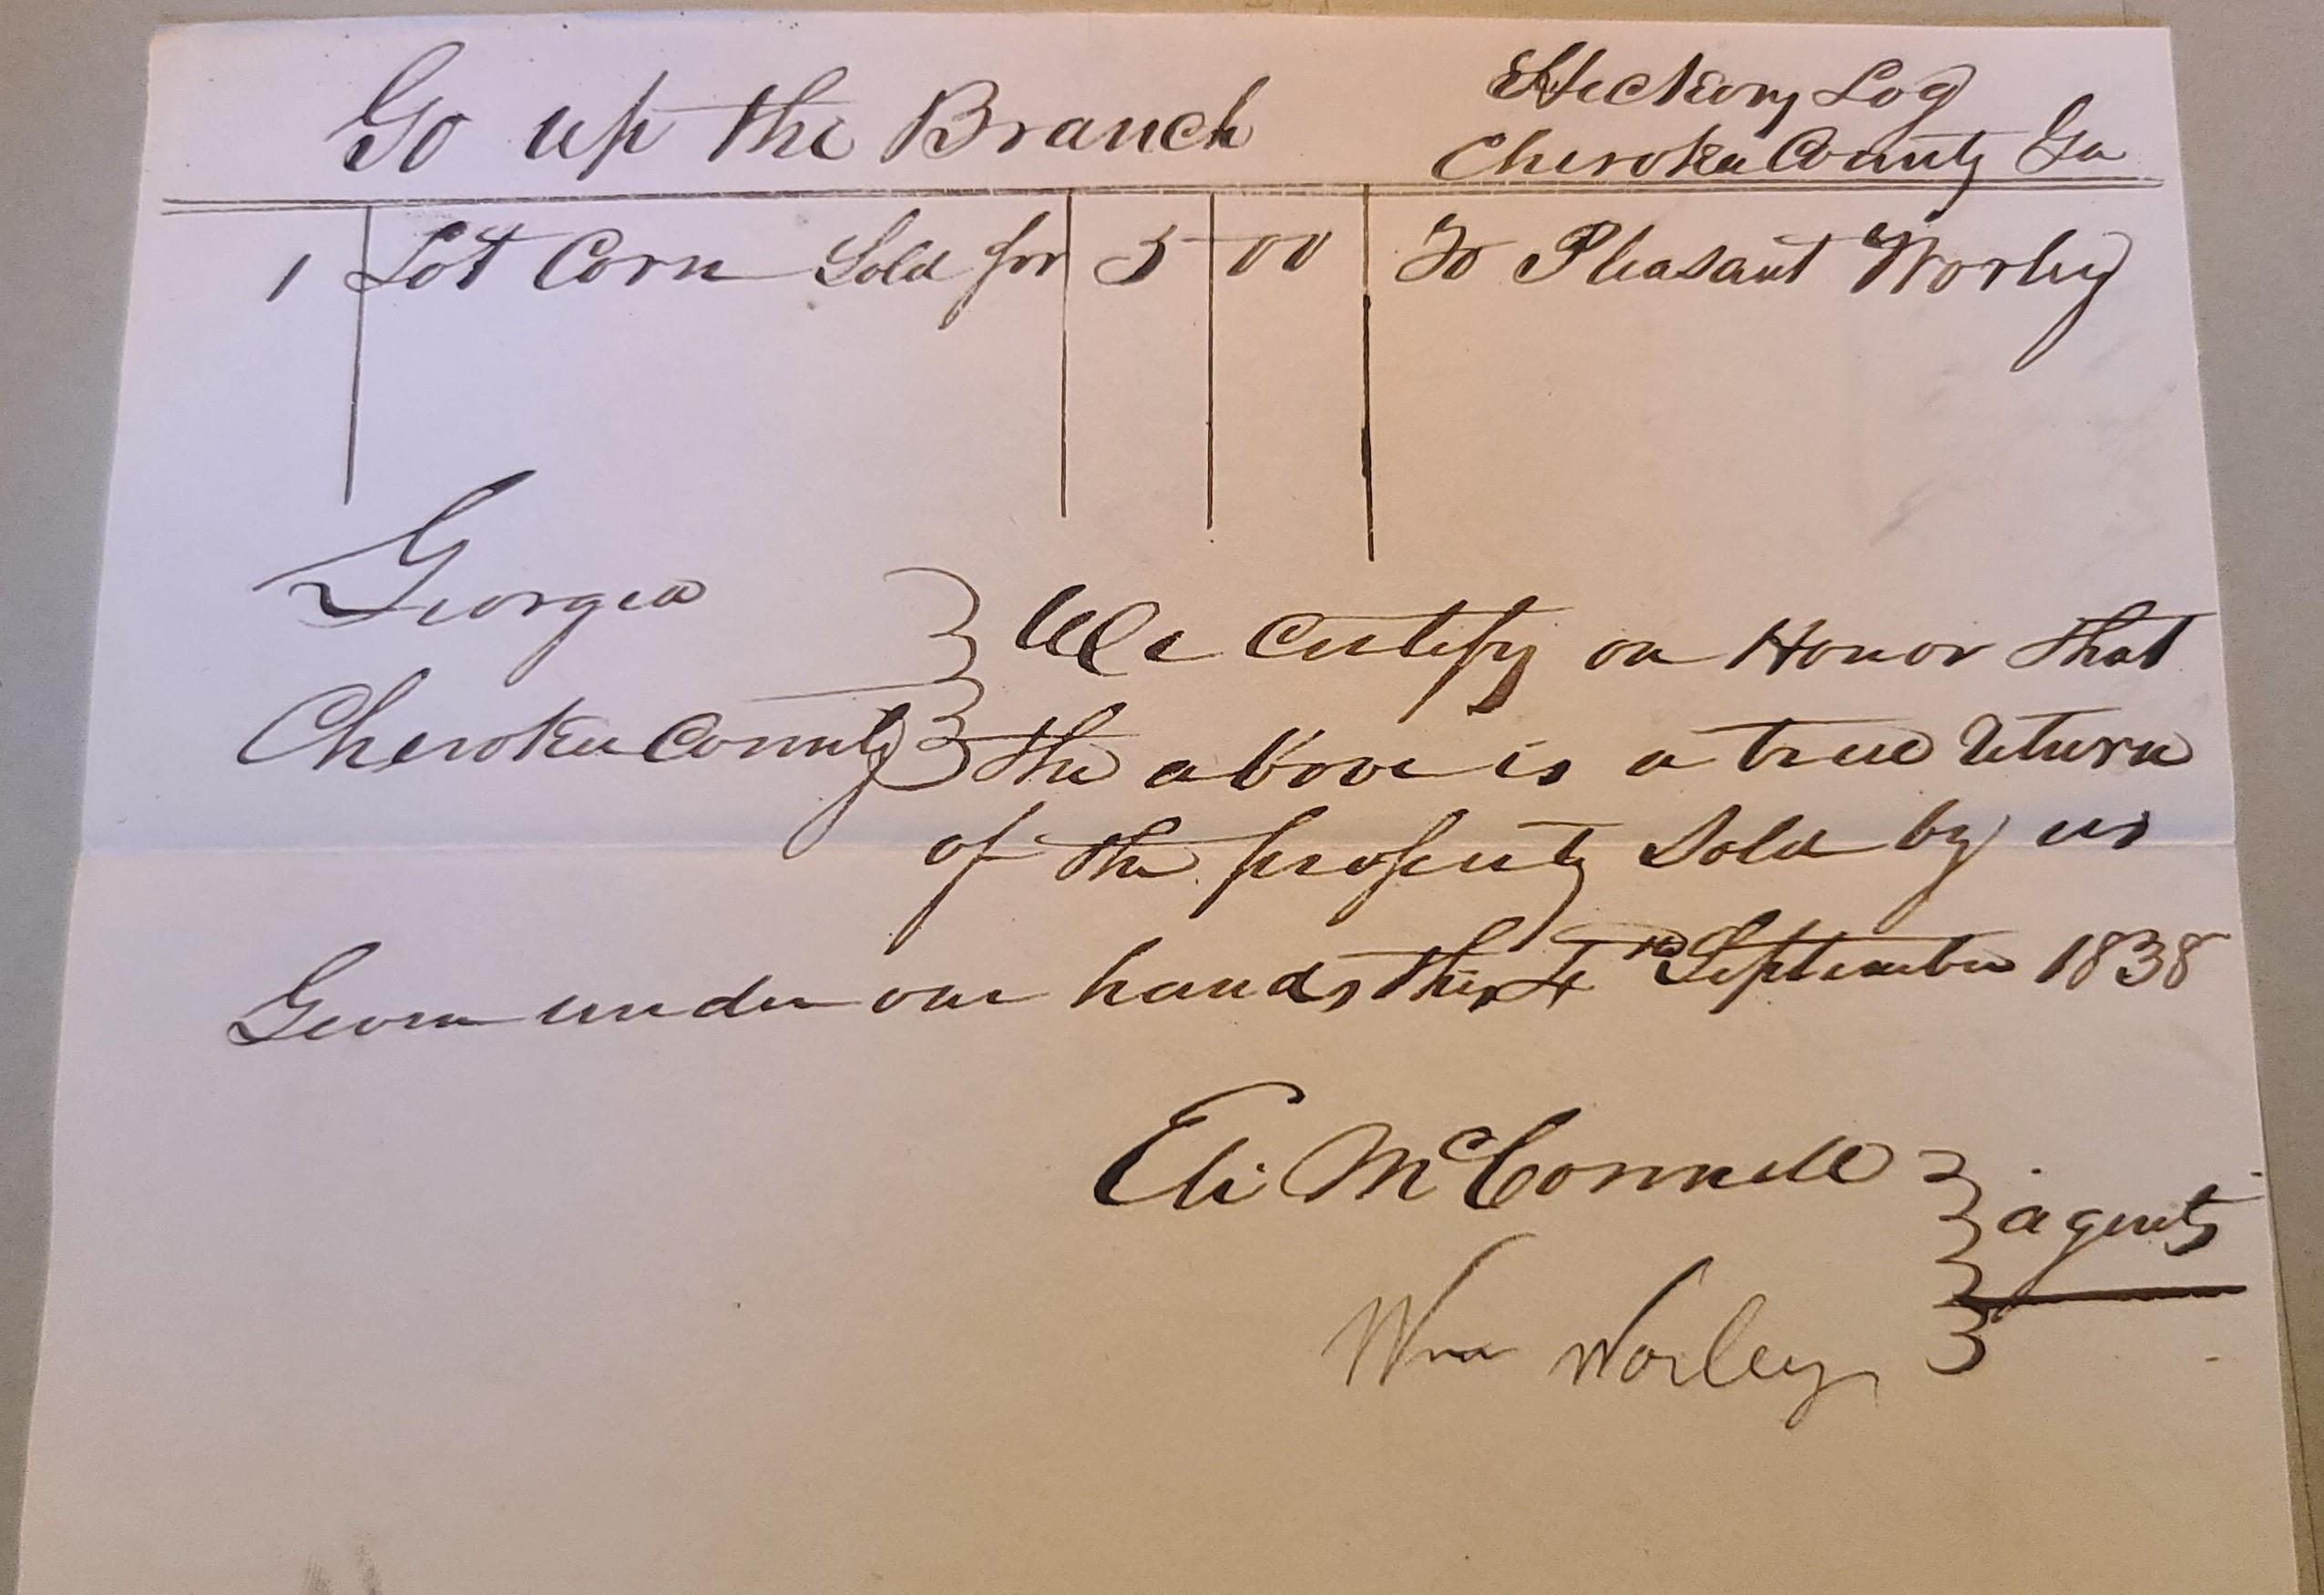 Go up the Branch Hickory Log
Cherokee County Ga
1 Lot Corn Sold for 5 00 To Pleasant Worley
Georgia
We Certify on Honor that
Cherokee County the above is a true return
of the property Sold by us
Given under our hands this 4th September 1838
Eli McConnell
agents
Wm Worley